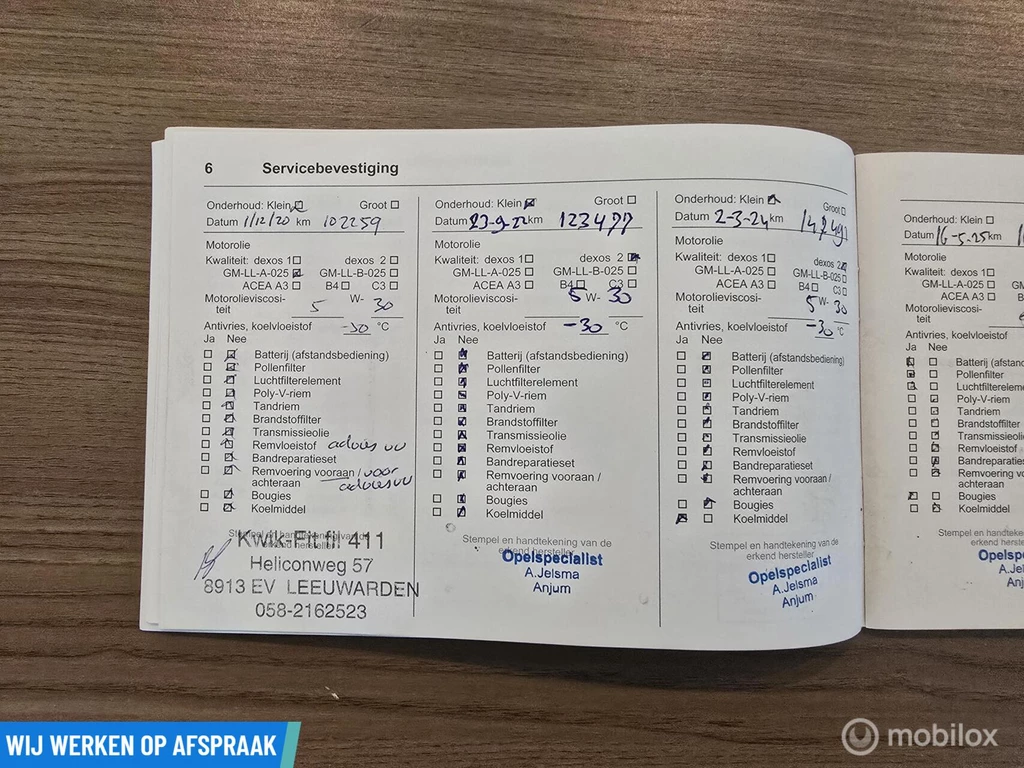 6 Servicebevestiging
Onderhoud: Klein Groot
Datum 1/12/20 km 102259
Motorolie
Kwaliteit: dexos 1
GM-LL-A-025 GM-LL-B-025
ACEA A3 B4 C3
Motorolieviscosi- 5 W- 30
teit
Antivries, koelvloeistof -30 °C
Ja Nee
Batterij (afstandsbediening)
Pollenfilter
Luchtfilterelement
Poly-V-riem
Tandriem
Brandstoffilter
Transmissieolie
Remvloeistof advies vv
Bandreparatieset
Remvoering vooraan / voor
achteraan advies vv
Bougies
Koelmiddel
Stempel en handtekening van de
erkend hersteller
Kwik-Fit fil 411
Heliconweg 57
8913 EV LEEUWARDEN
058-2162523
Onderhoud: Klein Groot
Datum 23-9-22 km 123477
Motorolie
Kwaliteit: dexos 1 dexos 2
GM-LL-A-025 GM-LL-B-025
ACEA A3 B4 C3
Motorolieviscosi- 5 W- 30
teit
Antivries, koelvloeistof -30 °C
Ja Nee
Batterij (afstandsbediening)
Pollenfilter
Luchtfilterelement
Poly-V-riem
Tandriem
Brandstoffilter
Transmissieolie
Remvloeistof
Bandreparatieset
Remvoering vooraan /
achteraan
Bougies
Koelmiddel
Stempel en handtekening van de
erkend hersteller
Opelspecialist
A.Jelsma
Anjum
Onderhoud: Klein Groot
Datum 2-3-24 km
Motorolie
Kwaliteit: dexos 1 dexos 2
GM-LL-A-025 GM-LL-B-025
ACEA A3 B4 C3
Motorolieviscosi- 5 W- 30
teit
Antivries, koelvloeistof -30 °C
Ja Nee
Batterij (afstandsbediening)
Pollenfilter
Luchtfilterelement
Poly-V-riem
Tandriem
Brandstoffilter
Transmissieolie
Remvloeistof
Bandreparatieset
Remvoering vooraan /
achteraan
Bougies
Koelmiddel
Stempel en handtekening van de
erkend hersteller
Opelspecialist
A.Jelsma
Anjum
Onderhoud: Klein
Datum 16-5-25 km
Motorolie
Kwaliteit: dexos 1
GM-LL-A-025
ACEA A3
Motorolieviscosi-
teit
Antivries, koelvloeistof
Ja Nee
Batterij (afstands
Pollenfilter
Luchtfilterelemen
Poly-V-riem
Tandriem
Brandstoffilter
Transmissieolie
Remvloeistof
Bandreparaties
Remvoering voo
achteraan
Bougies
Koelmiddel
Stempel en hand
erkend
Opelsp
A.J
An
WIJ WERKEN OP AFSPRAAK
mobilox